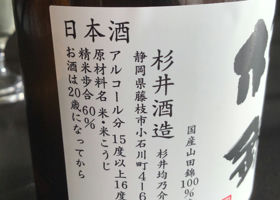 国産山田錦100%
杉井酒造 杉井均乃介
静岡県藤枝市小石川町4-6
日本酒
アルコール分 15度以上16度
原材料名 米・米こうじ
精米歩合 60%
お酒は20歳になってから